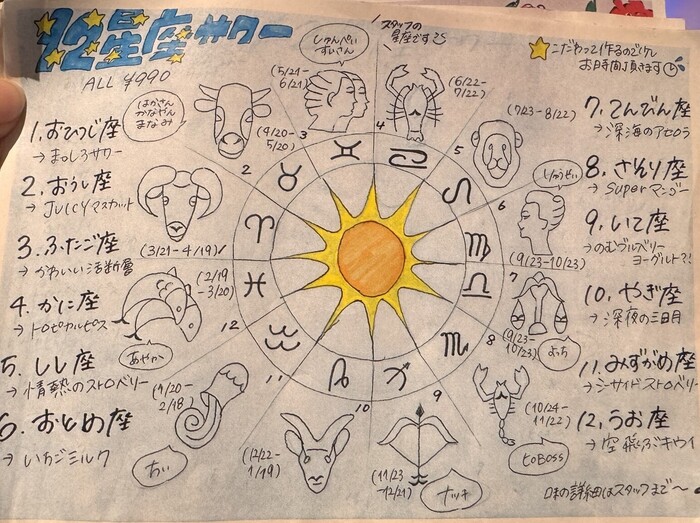 12星座サワー
ALL ¥990
スタッフの
星座です
こだわって作るので少し
お時間頂きます
1.おひつじ座
→まっしろサワー
2.おうし座
→JUICYマスカット
3.ふたご座
→かわいい活断層
4.かに座
→トロピカルピス
5.しし座
→情熱のストロベリー
6.おとめ座
→いちごミルク
7.てんびん座
→深海のアセロラ
8.さそり座
→Superマンゴー
9.いて座
→のむブルベリー
ヨーグルト?!
10.やぎ座
→深夜の三日月
11.みずがめ座
→シーサイドストロベリー
12.うお座
→空飛ぶキウイ
味の詳細はスタッフまで〜
じゅんぺい
すいさん
(5/21-
6/21)
3
(6/22-
7/22)
4
(7/23-8/22)
5
しゅうせい
6
(9/23-10/23)
7
(9/23-
10/23)
よっち
8
(10/24-
11/22)
ヒロBOSS
9
(11/23
-12/21)
ナッキ
10
(12/22-
1/19)
11
(1/20-
2/18)
ちぃ
12
(2/19
-3/20)
あやか
(3/21-4/19)
1
2
(4/20-
5/20)
はかさん
かなやん
まなみ
♈
♉
♊
♋
♌
♍
♎
♏
♐
♑
♒
♓